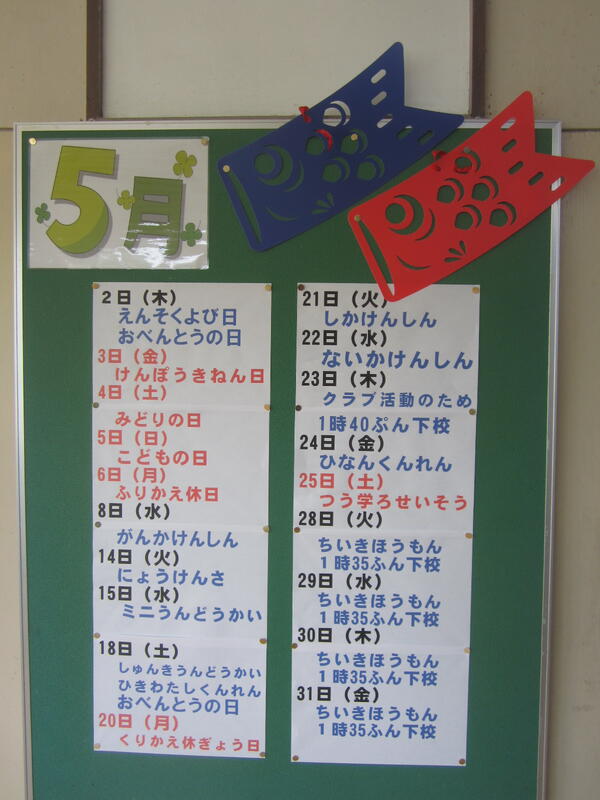 5月
2日（木）
えんそくよび日
おべんとうの日
3日（金）
けんぽうきねん日
4日（土）
みどりの日
5日（日）
こどもの日
6日（月）
ふりかえ休日
8日（水）
がんかけんしん
14日（火）
にょうけんさ
15日（水）
ミニうんどうかい
18日（土）
しゅんきうんどうかい
ひきわたしくんれん
おべんとうの日
20日（月）
くりかえ休ぎょう日
21日（火）
しかけんしん
22日（水）
ないかけんしん
23日（木）
クラブ活動のため
1時40ぷん下校
24日（金）
ひなんくんれん
25日（土）
つう学ろせいそう
28日（火）
ちいきほうもん
1時35ふん下校
29日（水）
ちいきほうもん
1時35ふん下校
30日（木）
ちいきほうもん
1時35ふん下校
31日（金）
ちいきほうもん
1時35ふん下校